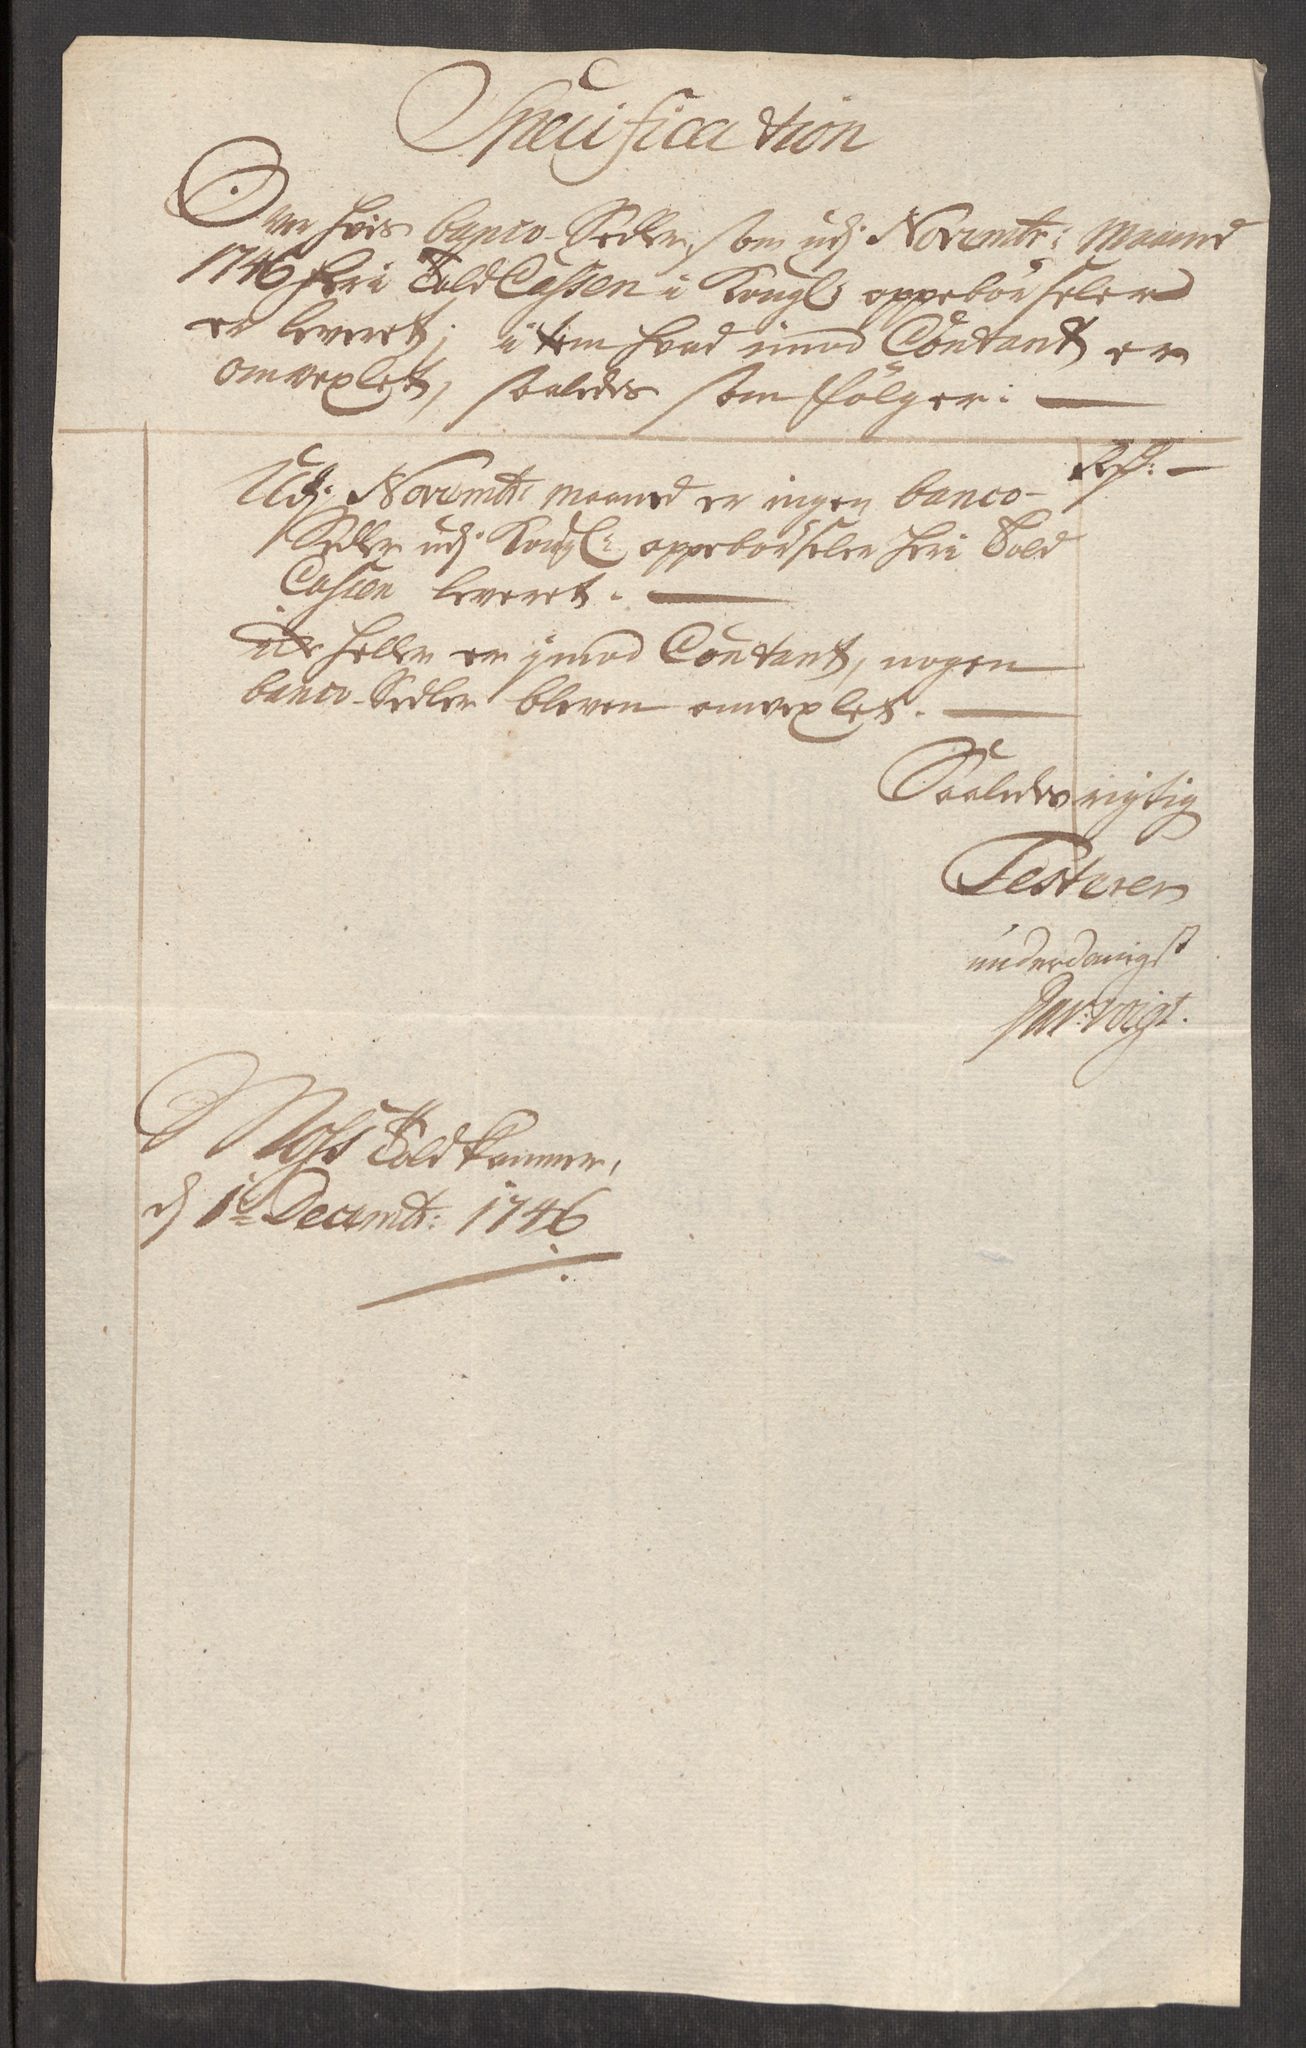 Specification
Over hvis banco-Sedler, som udj Novembr: Maaned
1746 her i Told Cassen i Kongl: oppebörseler
er leveret, item hvad imod Contant er
omvexlet, saaledes som fölger:
Rdr:
Udj Novembr: maaned er ingen banco-
Sedler udj Kongl: oppebörseler her i Told
Cassen leveret.
Ey heller er ymod Contant, nogen
banco-Sedler bleven omvexlet.
Saaledes rigtig
Testerer
underdanigst
Voigt.
Moss Toldkammer,
d 1te Decembr: 1746